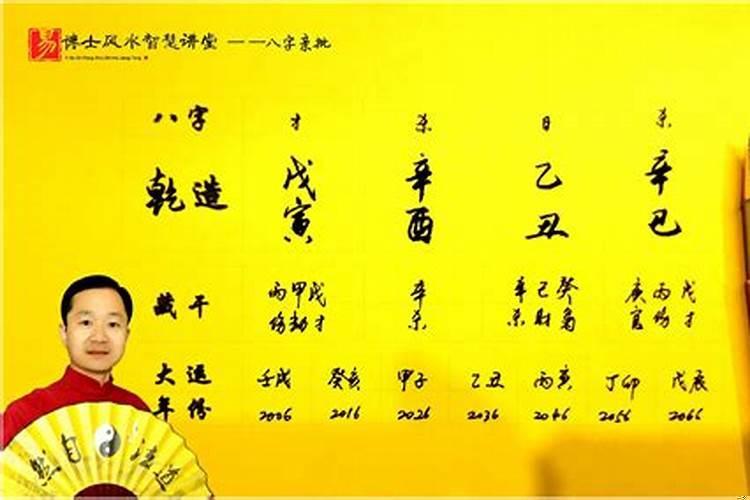 易 博士风水智慧讲堂 ——八字亲批
八字 才 杀 日 杀
乾造 戊 辛 乙 辛
寅 酉 丑 巳
藏干 丙甲戊 辛 辛己癸 庚丙戊
伤劫才 杀 杀财枭 官伤才
大运 壬戌 癸亥 甲子 乙丑 丙寅 丁卯 戊辰
年份 2006 2016 2026 2036 2046 2056 2066
然自 法道